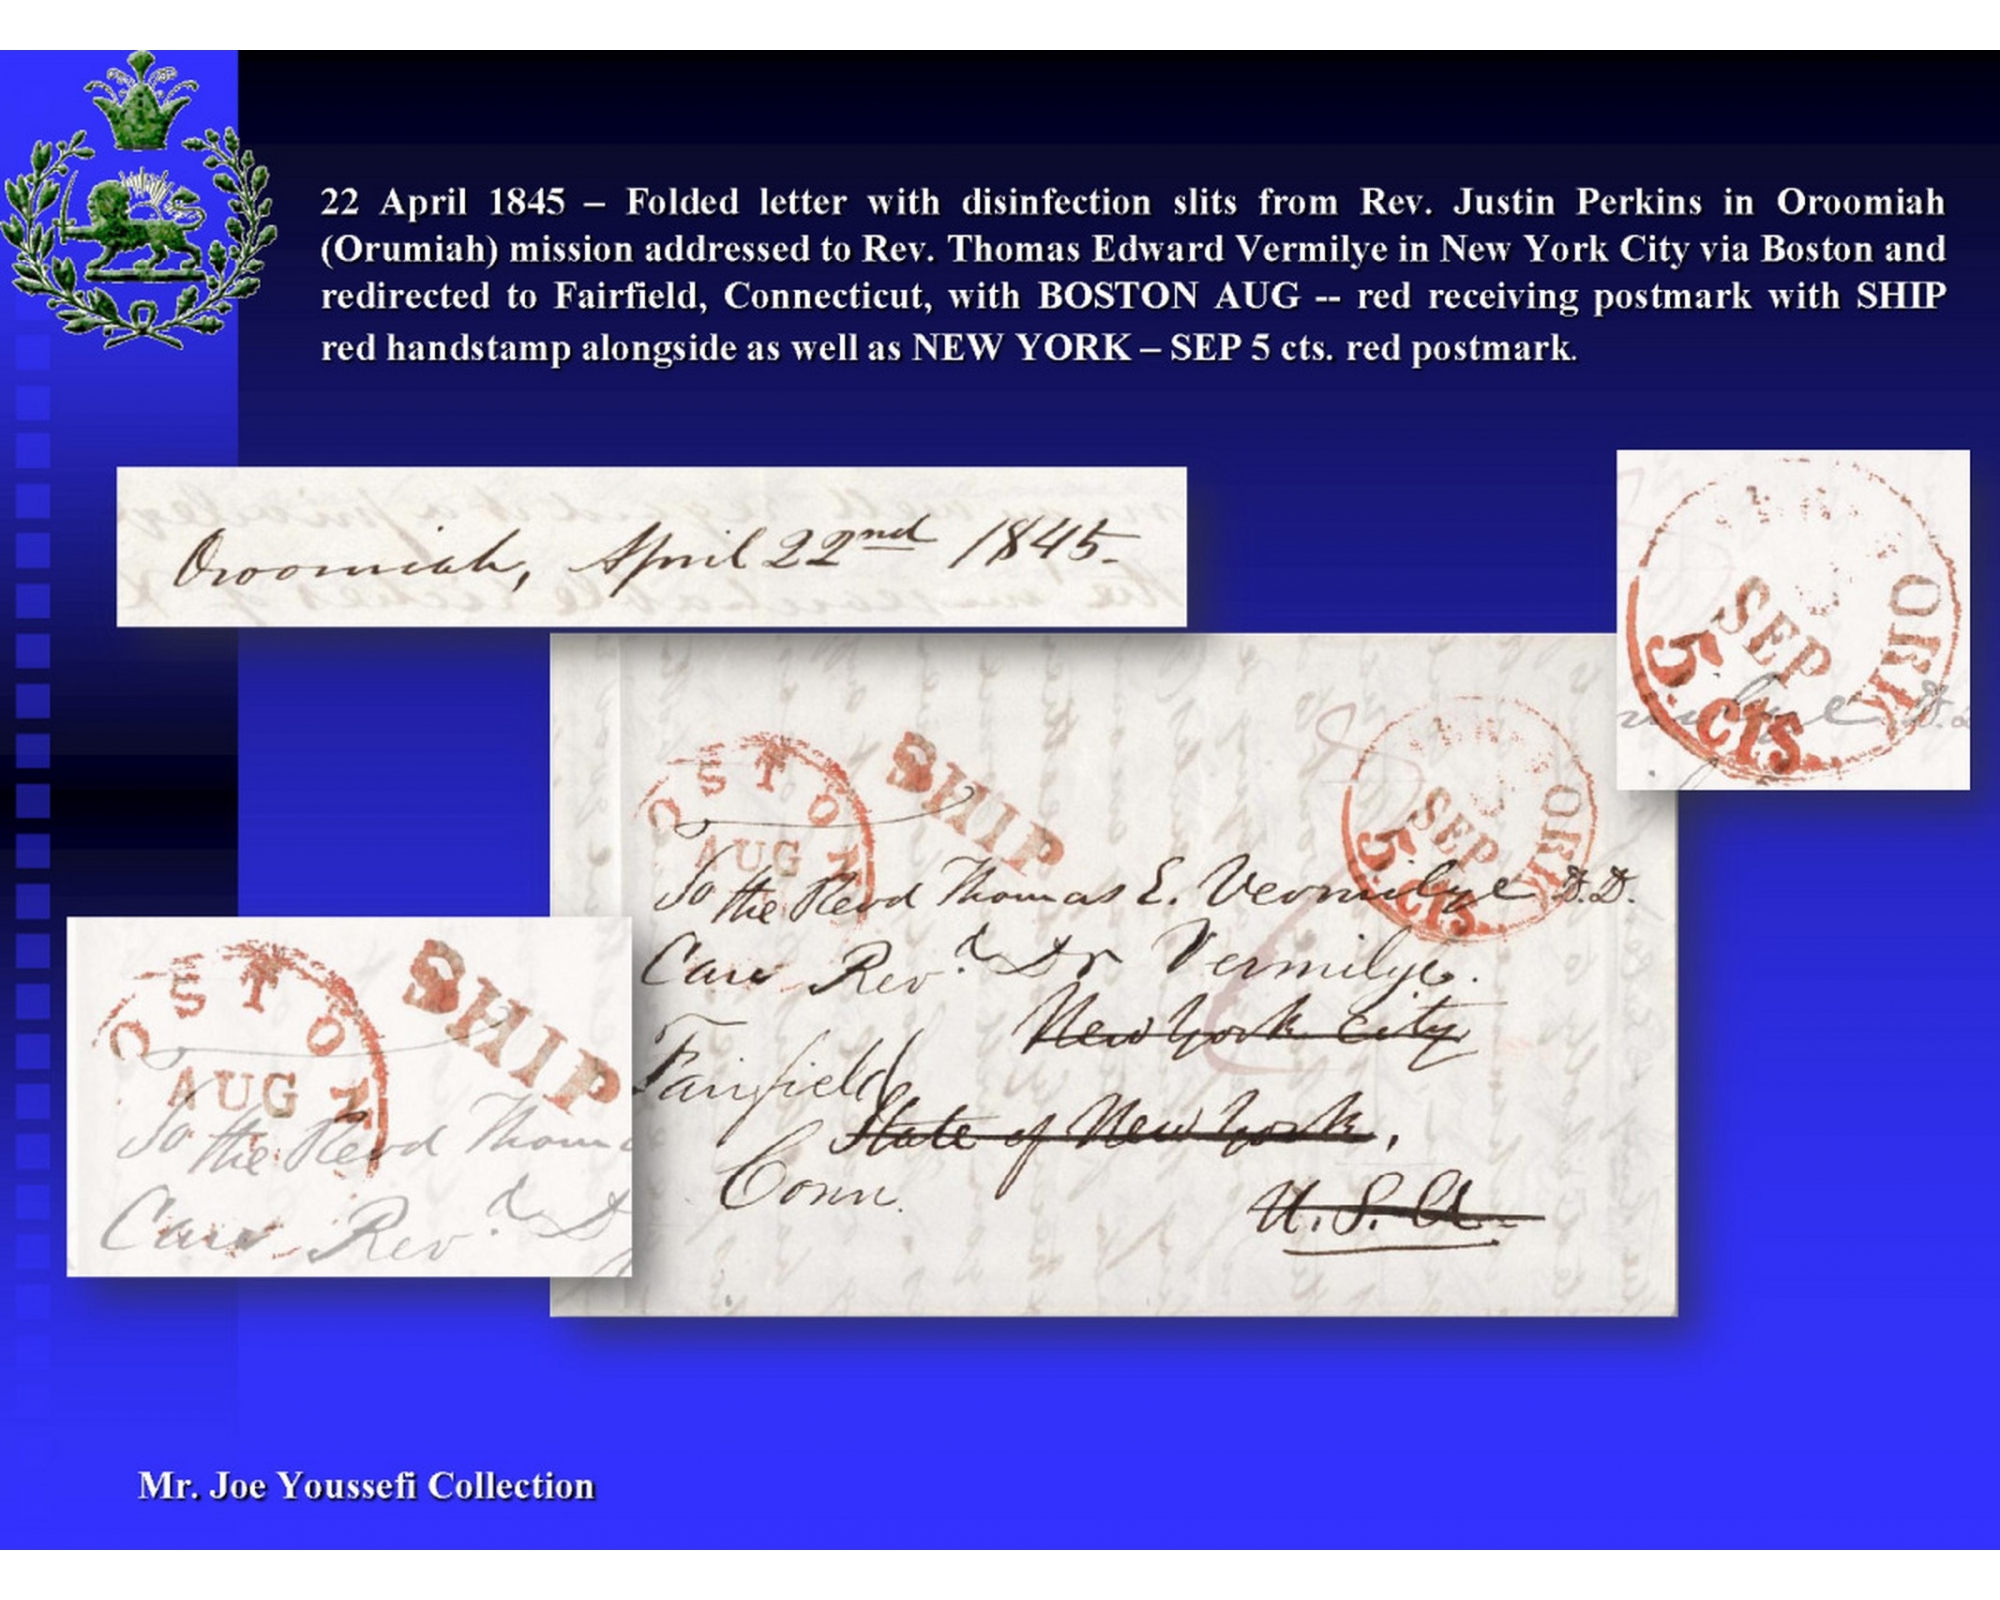 22 April 1845 – Folded letter with disinfection slits from Rev. Justin Perkins in Oroomiah
(Orumiah) mission addressed to Rev. Thomas Edward Vermilye in New York City via Boston and
redirected to Fairfield, Connecticut, with BOSTON AUG -- red receiving postmark with SHIP
red handstamp alongside as well as NEW YORK – SEP 5 cts. red postmark.
Oroomiah, April 22nd 1845.
ORK
SEP
5 CTS.
OSTON
AUG
SHIP
ORK
SEP
5 CTS.
To the Revd Thomas E. Vermilye D.D.
Care Revd Dr Vermilye.
New York City
Fairfield
State of New York,
Conn.
U.S.A.
OSTON
AUG
SHIP
To the Revd Thom
Care Revd D
Mr. Joe Youssefi Collection